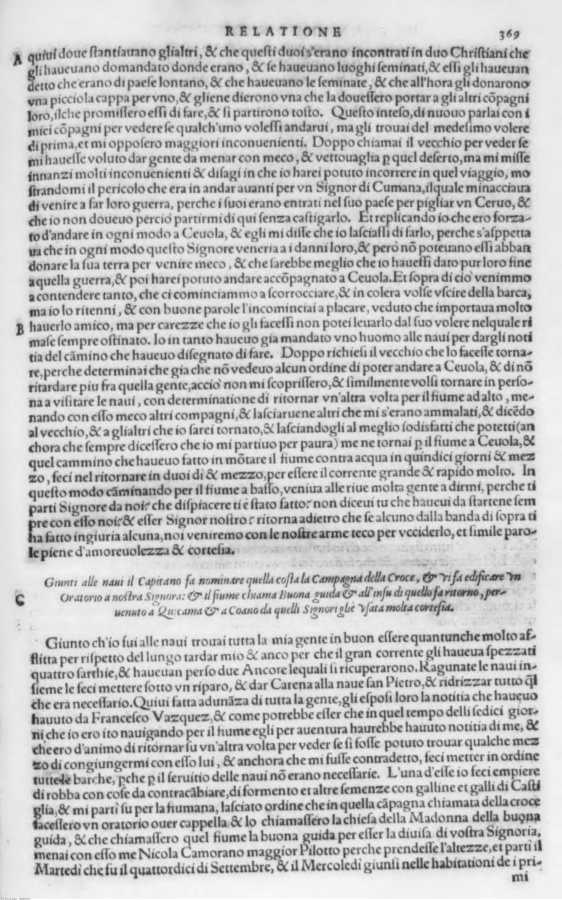 RELATIONE 369
A quiui doue stantiauano glialtri, & che questi duoi s'erano incontrati in duo Christiani che
gli haueuano domandato donde erano, & se haueuano luoghi seminati, & essi gli haueuan
detto che erano di paese lontano, & che haueuano le seminate, & che all'hora gli donarono
vna picciola cappa per vno, & gliene dierono vna che la douessero portar a gli altri cõpagni
loro, ilche promissero essi di fare, & si partirono tosto. Questo inteso, di nuouo parlai con i
miei cõpagni per vedere se qualch'uno volessi andarui, ma gli trouai del medesimo volere
di prima, et mi opposero maggiori inconuenienti. Doppo chiamai il vecchio per veder se
mi hauesse voluto dar gente da menar con meco, & vettouaglia p quel deserto, ma mi misse
innanzi molti inconuenienti & disagi in che io harei potuto incorrere in quel viaggio, mo
strandomi il pericolo che era in andar auanti per vn Signor di Cumana, ilquale minacciaua
di venire a far loro guerra, perche i suoi erano entrati nel suo paese per pigliar vn Ceruo, &
che io non doueuo perciò partirmi di qui senza castigarlo. Et replicando io che ero forza-
to d'andare in ogni modo a Ceuola, & egli mi disse che io lasciassi di farlo, perche s'aspetta
ua che in ogni modo questo Signore veneria a i danni loro, & però nõ poteuano essi abban
donare la sua terra per venire meco, & che sarebbe meglio che io hauessi dato pur loro fine
a quella guerra, & poi harei potuto andare accõpagnato a Ceuola. Et sopra di cio venimmo
a contendere tanto, che ci cominciammo a scorrocciare, & in colera volse vscire della barca,
ma io lo ritenni, & con buone parole l'incominciai a placare, veduto che importaua molto
B hauerlo amico, ma per carezze che io gli facessi non potei leuarlo dal suo volere nelquale ri
mase sempre ostinato. Io in tanto haueuo gia mandato vno huomo alle naui per dargli noti
tia del cãmino che haueuo disegnato di fare. Doppo richiesi il vecchio che lo facesse torna-
re, perche determinai che gia che nõ vedeuo alcun ordine di poter andare a Ceuola, & di nõ
ritardare piu fra quella gente, acciò non mi scoprissero, & similmente volsi tornare in perso-
na a visitare le naui, con determinatione di ritornar vn'altra volta per il fiume ad alto, me-
nando con esso meco altri compagni, & lasciaruene altri che mi s'erano ammalati, & dicẽdo
al vecchio, & a glialtri che io sarei tornato, & lasciandogli al meglio sodisfatti che potetti (an
chora che sempre dicessero che io mi partiuo per paura) me ne tornai p il fiume a Ceuola, &
quel cammino che haueuo fatto in mõtare il fiume contra acqua in quindici giorni & mez
zo, feci nel ritornare in duoi di & mezzo, per essere il corrente grande & rapido molto. In
questo modo cãminando per il fiume a basso, veniua alle riue molta gente a dirmi, perche ti
parti Signore da noi? che dispiacere ti è stato fatto? non diceui tu che haueui da startene sem
pre con esso noi? & esser Signor nostro? ritorna adietro che se alcuno dalla banda di sopra ti
ha fatto ingiuria alcuna, noi veniremo con le nostre arme teco per vcciderlo, et simile paro-
le piene d'amoreuolezza & cortesia.
Giunti alle naui il Capitano fa nominare quella costa la Campagna della Croce, & vi fa edificare vn
C Oratorio a nostra Signora: & il fiume chiama Buona guida & all'insu di quello fa ritorno, per-
uenuto a Quicama & a Coano da quelli Signori gliè vsata molta cortesia.
Giunto ch'io fui alle naui trouai tutta la mia gente in buon essere quantunche molto af-
flitta per rispetto del lungo tardar mio & anco per che il gran corrente gli haueua spezzati
quattro sarthie, & haueuan perso due Ancore lequali si ricuperarono. Ragunate le naui in-
sieme le feci mettere sotto vn riparo, & dar Carena alla naue san Pietro, & ridrizzar tutto ql
che era necessario. Quiui fatta adunãza di tutta la gente, gli esposi loro la notitia che haueuo
hauuto da Francesco Vazquez, & come potrebbe esser che in quel tempo delli sedici gior-
ni che io ero ito nauigando per il fiume egli per auentura harebbe hauuto notitia di me, &
che ero d'animo di ritornar su vn'altra volta per veder se si fosse potuto trouar qualche mez
zo di congiungermi con esso lui, & anchora che mi fusse contradetto, feci metter in ordine
tutte le barche, pche p il seruitio delle naui nõ erano necessarie. L'una d'esse io feci empiere
di robba con cose da contracãbiare, di formento et altre semenze con galline et galli di Casti
glia, & mi parti su per la fiumana, lasciato ordine che in quella cãpagna chiamata della croce
facessero vn oratorio ouer cappella & lo chiamassero la chiesa della Madonna della buona
guida, & che chiamassero quel fiume la buona guida per esser la diuisa di vostra Signoria,
menai con esso me Nicola Camorano maggior Pilotto perche prendesse l'altezze, et parti il
Martedì che fu il quattordici di Settembre, & il Mercoledi giunsi nelle habitationi de i pri-
mi